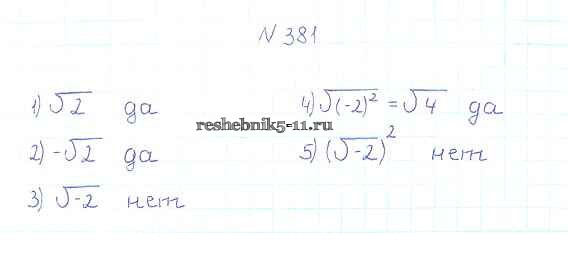 № 381
1) √2 да
2) -√2 да
3) √-2 нет
4) √(-2)² = √4 да
5) (√-2)² нет
reshebnik5-11.ru